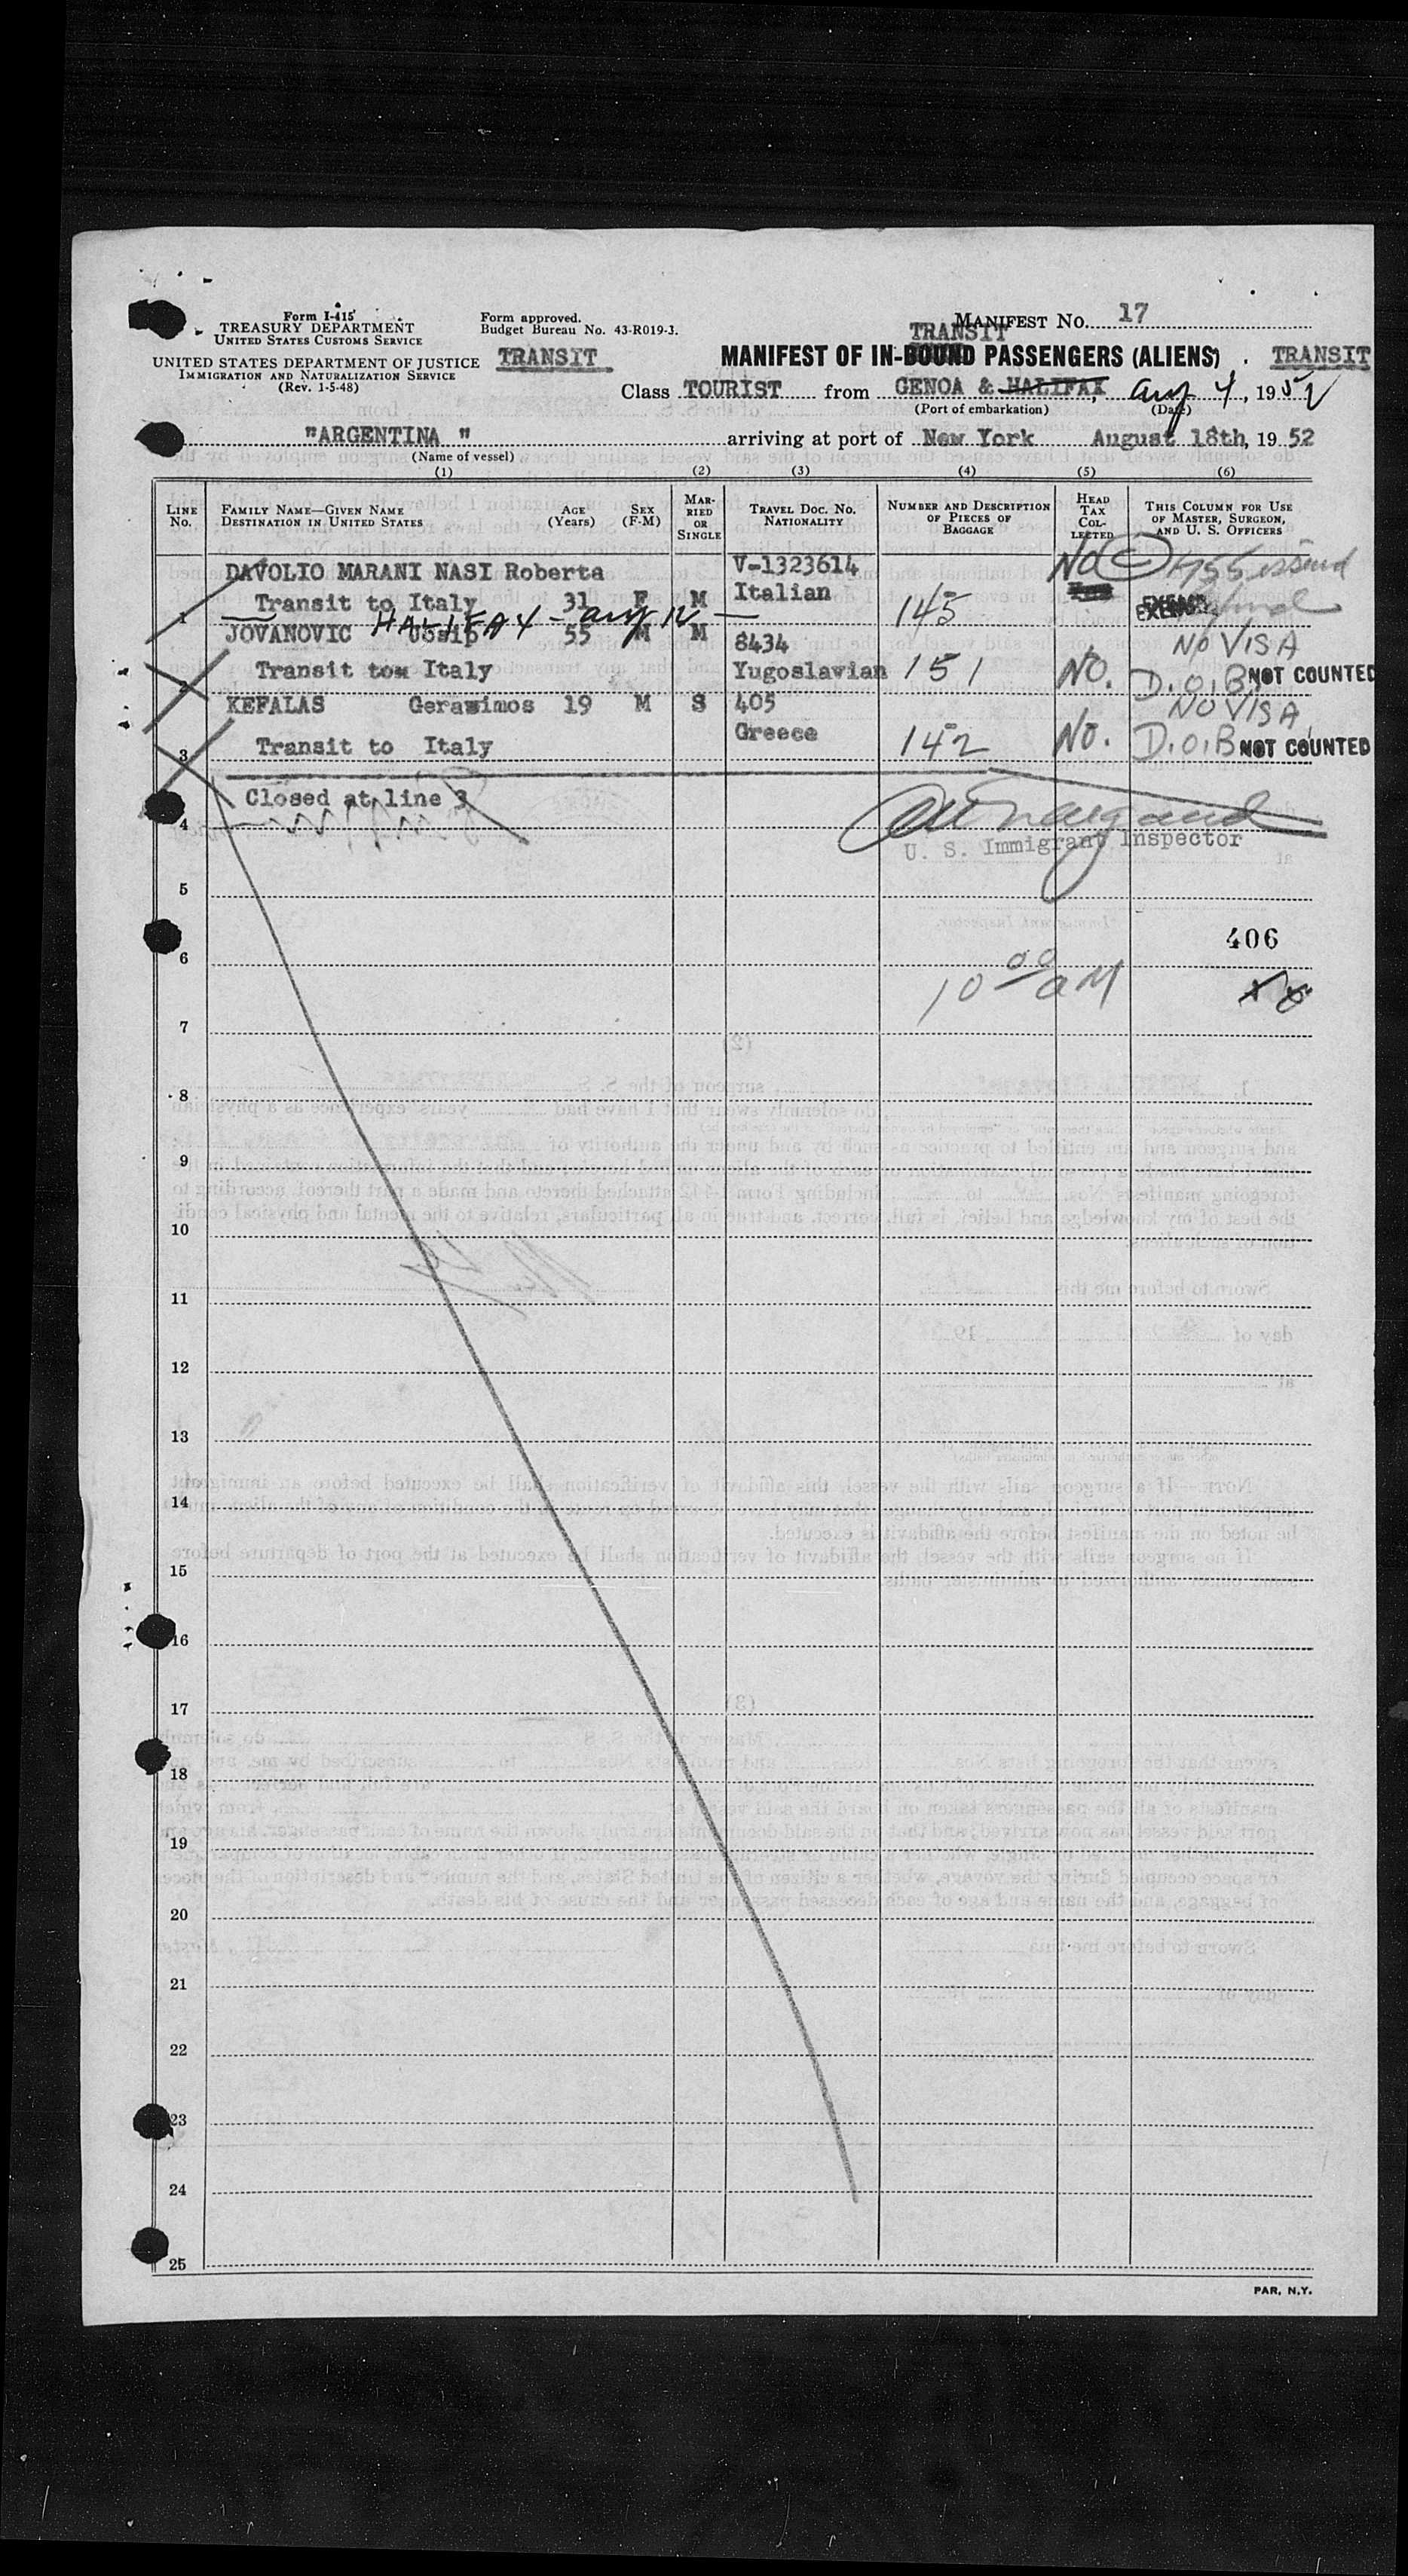 Form I-415
TREASURY DEPARTMENT
UNITED STATES CUSTOMS SERVICE
UNITED STATES DEPARTMENT OF JUSTICE
IMMIGRATION AND NATURALIZATION SERVICE
(Rev. 1-5-48)
Form approved.
Budget Bureau No. 43-R019-3.
TRANSIT
MANIFEST NO. 17
TRANSIT
MANIFEST OF IN-BOUND PASSENGERS (ALIENS)
TRANSIT
Class TOURIST from GENOA & HALIFAX, Aug 4, 1952
(Port of embarkation) (Date)
"ARGENTINA " arriving at port of New York August 18th, 1952
(Name of vessel)
(1) (2) (3) (4) (5) (6)
LINE NO.
FAMILY NAME—GIVEN NAME
DESTINATION IN UNITED STATES
AGE (Years)
SEX (F-M)
MARRIED OR SINGLE
TRAVEL DOC. NO.
NATIONALITY
NUMBER AND DESCRIPTION OF PIECES OF BAGGAGE
HEAD TAX COLLECTED
THIS COLUMN FOR USE OF MASTER, SURGEON, AND U. S. OFFICERS
DAVOLIO MARANI NASI Roberta V-1323614 No C 455 issued
1 Transit to Italy 31 F M Italian 145 EXEMPT
— HALIFAX - Aug 12 —
JOVANOVIC Josip 55 M M 8434 NO VISA
2 Transit to Italy Yugoslavian 151 No. D.O.B NOT COUNTED
KEFALAS Gerasimos 19 M S 405 NO VISA
3 Transit to Italy Greece 142 No. D.O.B NOT COUNTED
Closed at line 3
4
U. S. Immigrant Inspector
5
406
6
10 00 AM
7
8
9
10
11
12
13
14
15
16
17
18
19
20
21
22
23
24
25
PAR, N.Y.